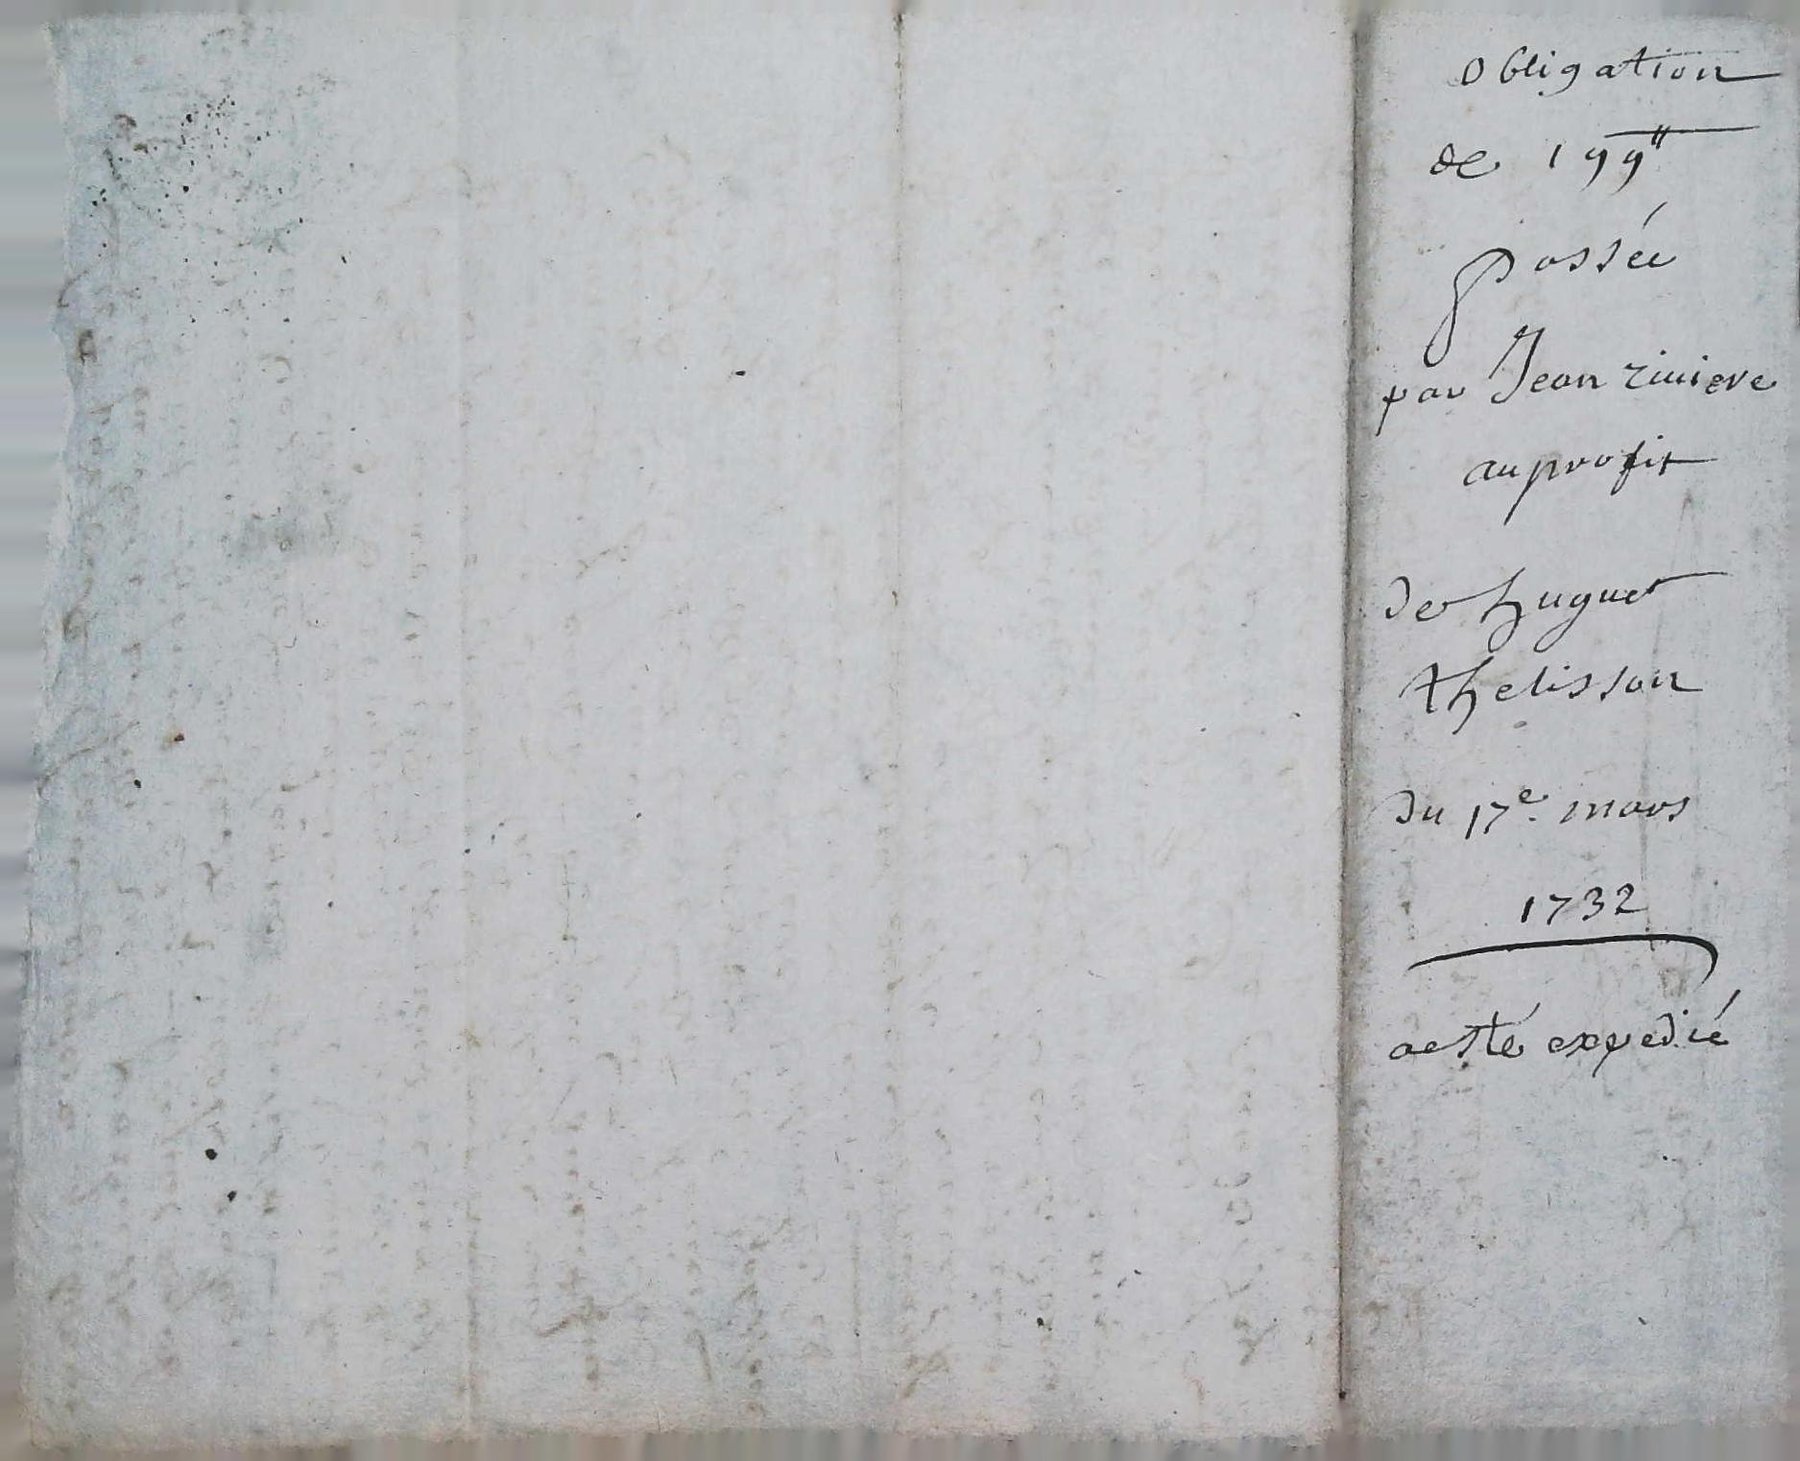 obligation
de 199ᴸᴸ
passée
par Jean riviere
au profit
de huguet
thelisson
du 17e. mars
1732
a esté expedié